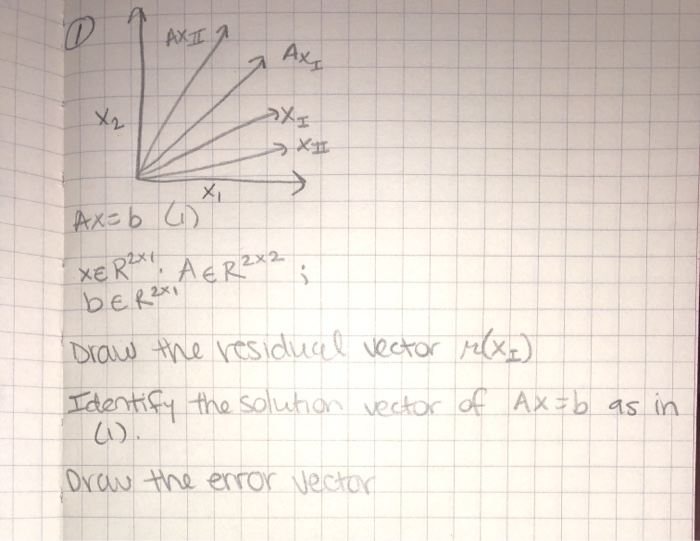 ①
AxII
AxI
x2
xI
xII
x1
Ax=b (1)
x∈R^2×1. A∈R^2×2 ;
b∈R^2×1
Draw the residual vector r(xI)
Identify the solution vector of Ax=b as in
(1).
Draw the error vector